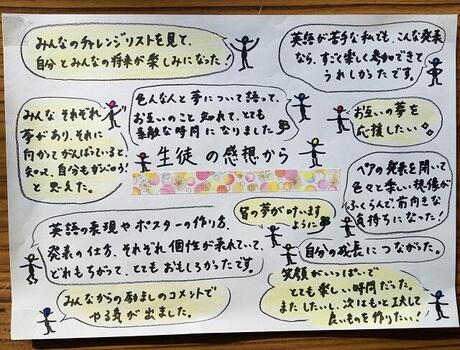 みんなのチャレンジリストを見て、
自分とみんなの将来が楽しみになった！
英語が苦手な私でも、こんな発表
なら、すごく楽しく参加できて
うれしかったです。
みんな それぞれ
夢があり、それに
向かってがんばっていると
知って、自分もがんばろう！
と思えた。
色んな人と夢について語って、
お互いのこと知れて、とても
素敵な時間になりました
お互いの夢を
応援したい
生徒の感想から
ペアの発表を聞いて
色々と楽しい想像が
ふくらんで前向きな
気持ちになった！
皆の夢が叶います
ように
英語の表現やポスターの作り方、
発表の仕方、それぞれ個性が表れていて、
どれもちがって、とてもおもしろかったです。
自分の成長につながった。
みんなからの励ましのコメントで
やる気が出ました。
笑顔がいっぱいで
とても楽しい時間だった。
またしたいし、次はもっと工夫して
良いものを作りたい！